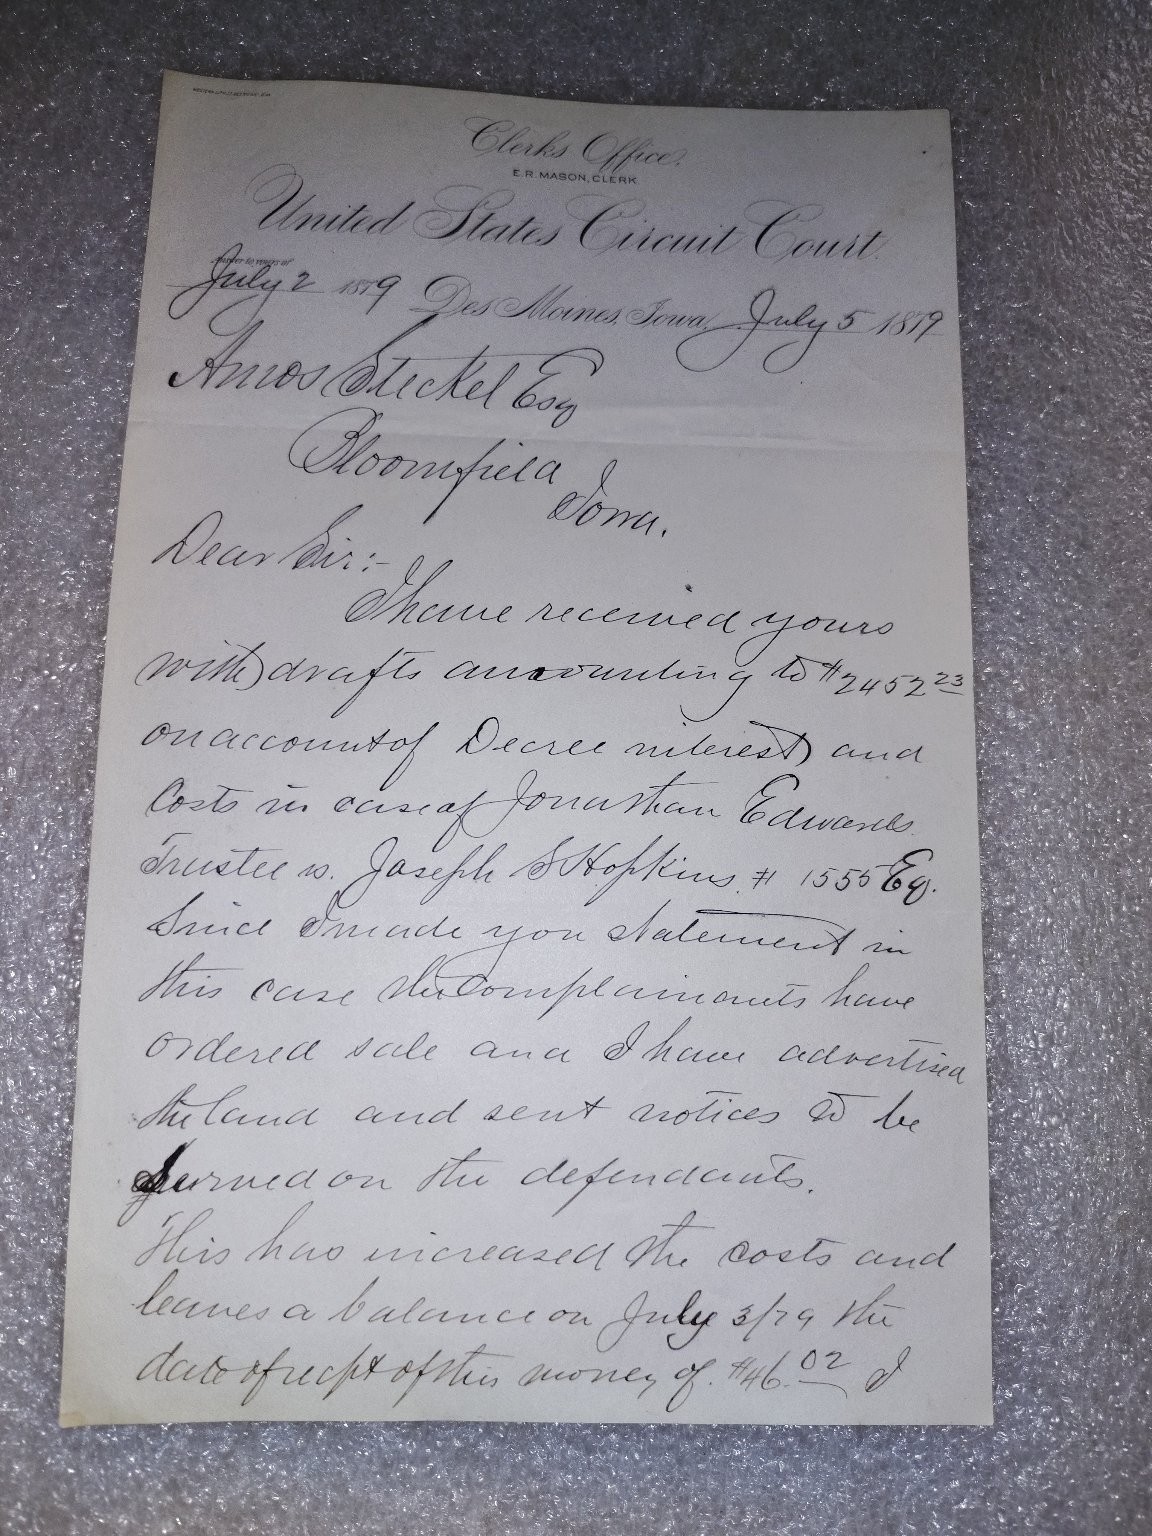 Clerks Office.
E. R. MASON, CLERK.
United States Circuit Court.
Answer to yours of
July 2 1879 Des Moines, Iowa, July 5 1879
Amos Steckel Esq
Bloomfield
Iowa.
Dear Sir:-
I have received yours
with drafts amounting to #2452 23
on account of Decree interest and
Costs in case of Jonathan Edwards
Trustee vs. Joseph S Hopkins # 1555 Eq.
Since I made you statement in
this case the Complainants have
ordered sale and I have advertised
the land and sent notices to be
served on the defendants.
This has increased the costs and
leaves a balance on July 3/79 the
date of recpt of this money of. #46.02 I